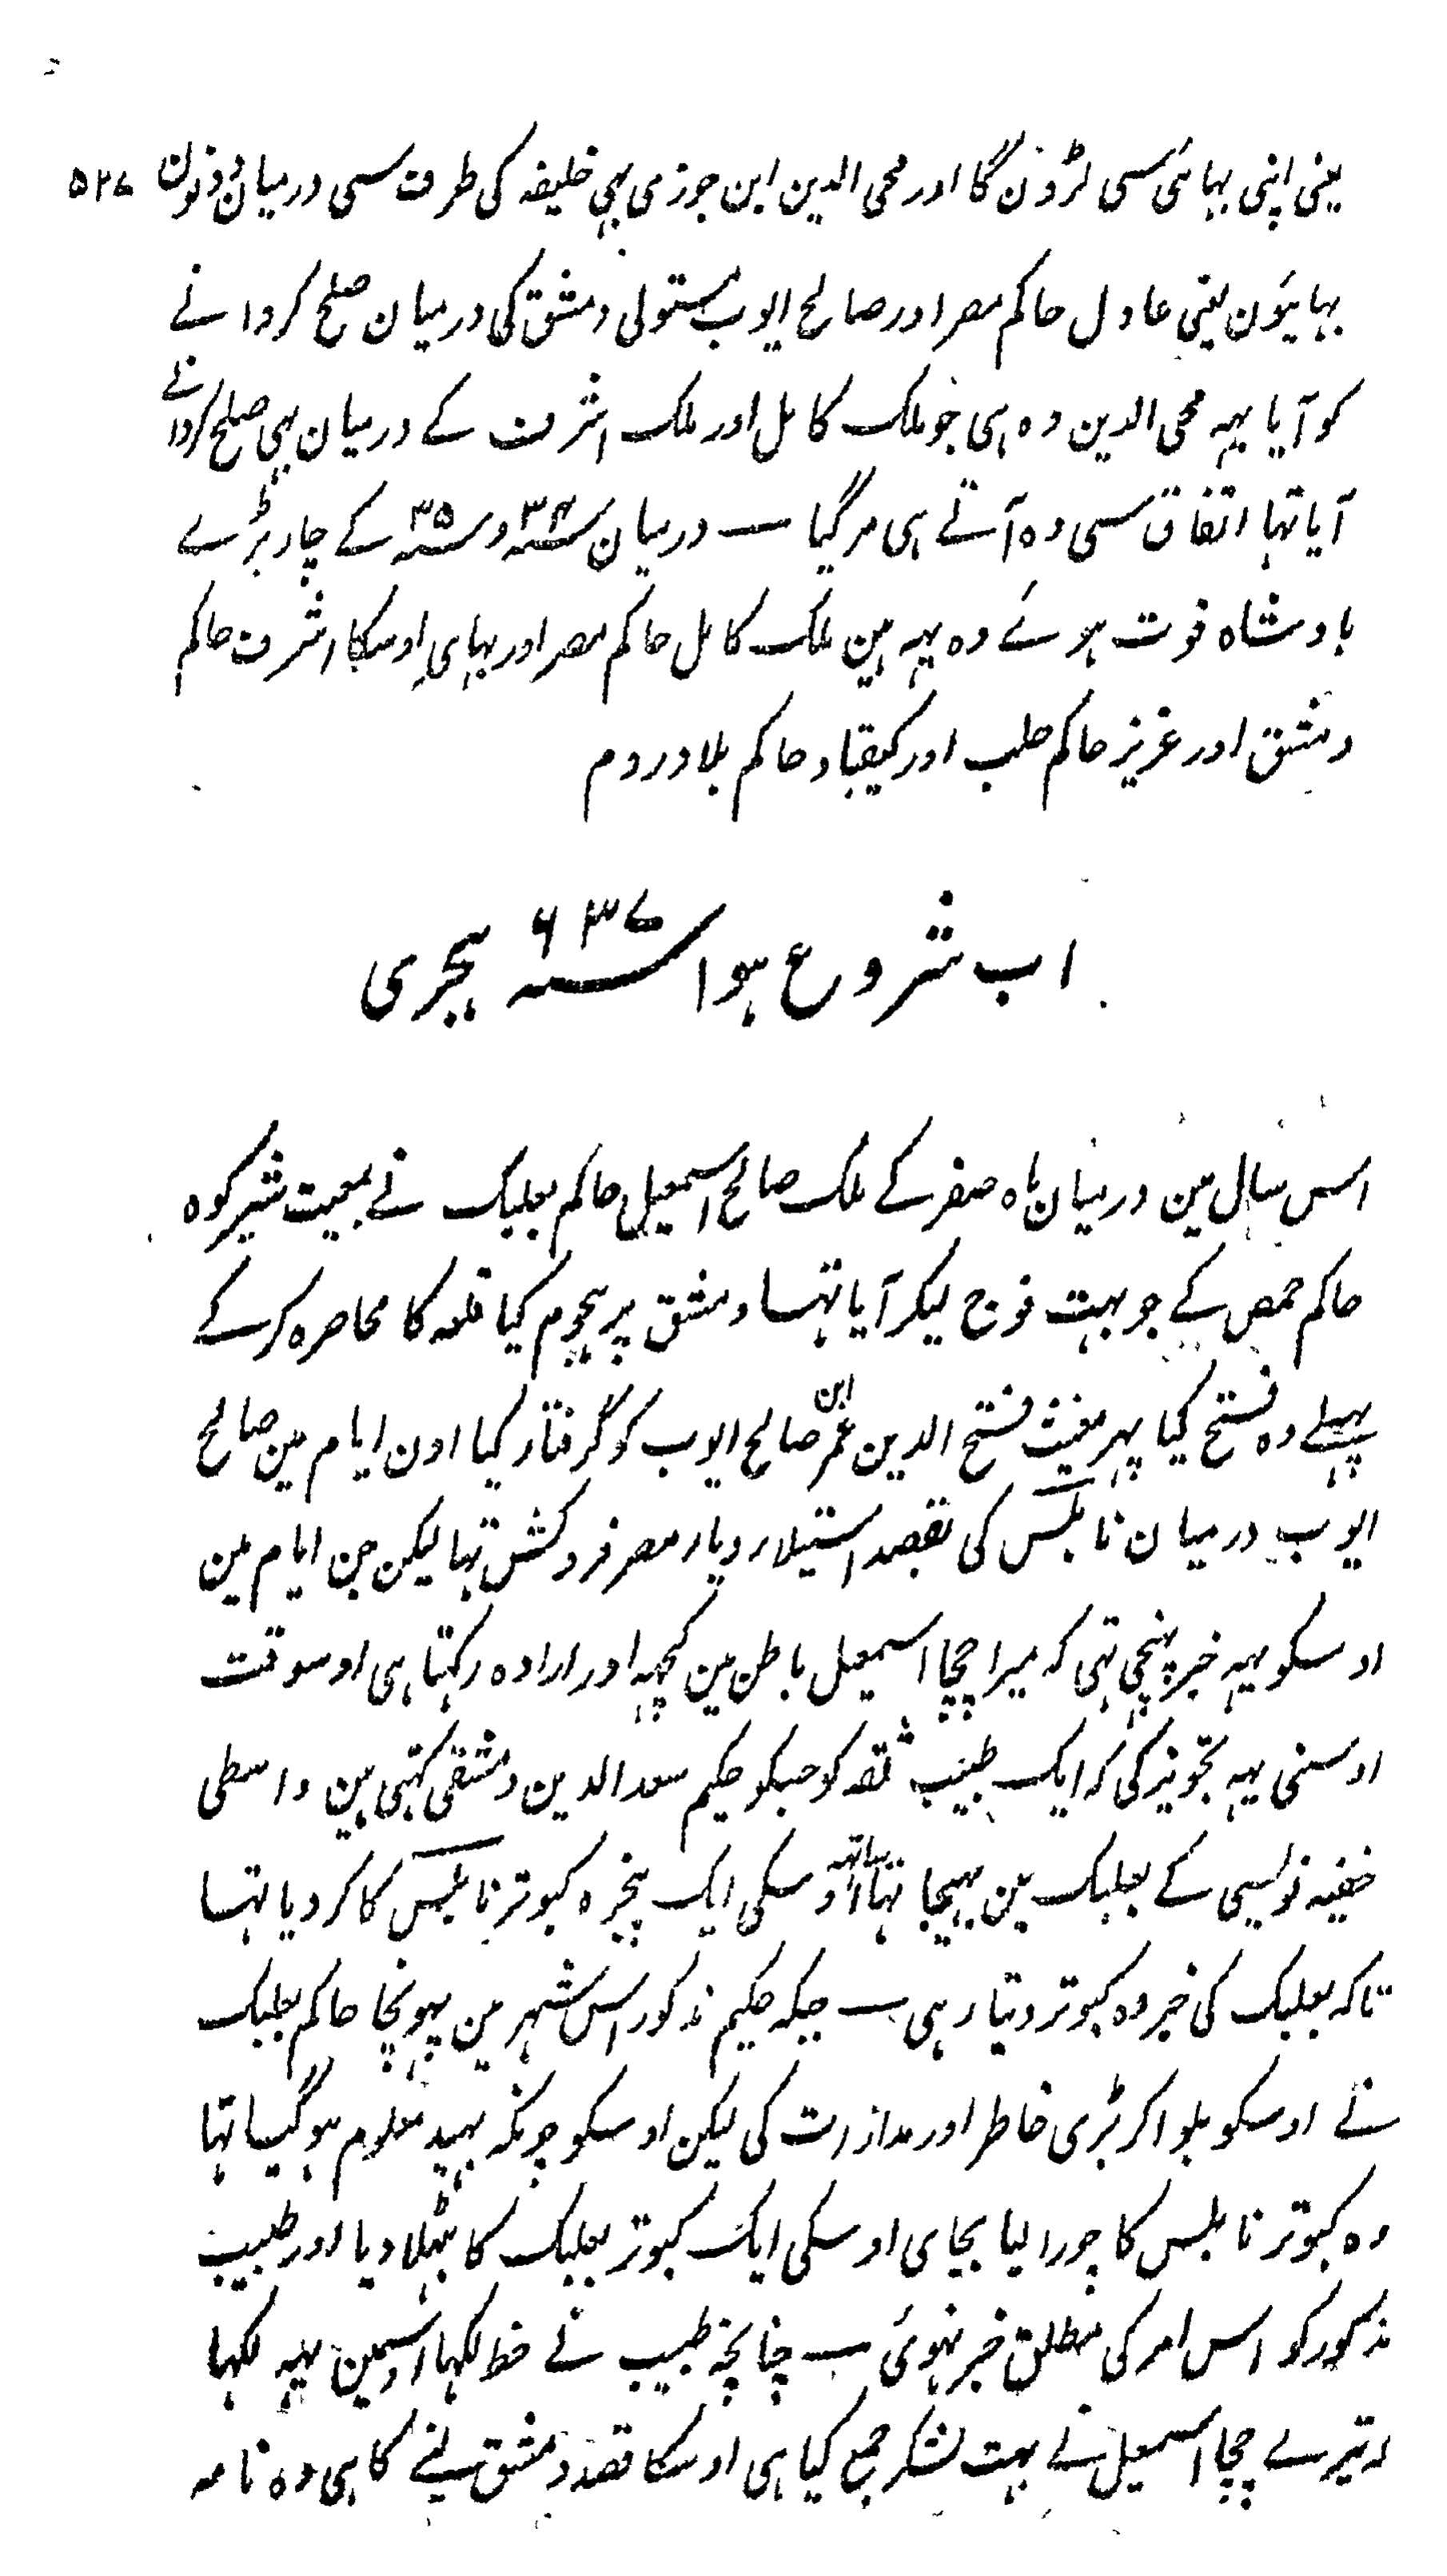 ۵۲۷
یعنی اپنی بہائی سی لڑونگا اور محی الدین ابن جوزی بہی خلیفہ کی طرف سی درمیان دونون
بہائیون یعنی عادل حاکم مصر اور صالح ایوب مستولی دمشق کی درمیان صلح کروانے
کو آیا یہہ محی الدین وہ ہی جو ملک کامل اور ملک اشرف کے درمیان بہی صلح کروانے
آیا تہا اتفاق سی وہ آتے ہی مر گیا — درمیان سنہ ۳۴ و سنہ ۳۵ کے چار بڑے
بادشاہ فوت ہوئے وہ یہہ ہین ملک کامل حاکم مصر اور بہای اوسکا اشرف حاکم
دمشق اور عزیز حاکم حلب اور کیقباد حاکم بلاد روم
اب شروع ہوا سنہ ۶۳۷ ہجری
اس سال مین درمیان ماہ صفر کے ملک صالح اسمعیل حاکم بعلبک نے بمعیت شیرکوہ
حاکم حمص کے جو بہت فوج لیکر آیا تہا دمشق پر ہجوم کیا قلعہ کا محاصرہ کر کے
پہلے وہ فتح کیا پہر مغیث فتح الدین عمر ابن صالح ایوب کو گرفتار کیا اون ایام مین صالح
ایوب درمیان نابلس کی بقصد استیلاء دیار مصر فروکش تہا لیکن جن ایام مین
اوسکو یہہ خبر پہنچی تہی کہ میرا چچا اسمعیل باطن مین کچہہ اور ارادہ رکہتا ہی اوسوقت
اوسنی یہہ تجویز کی کہ ایک طبیب ثقہ کو جسکو حکیم سعد الدین دمشقی کہتی ہین واسطی
خفیہ نویسی کے بعلبک مین بہیجا تہا اوسکی ساتہہ ایک پنجرہ کبوتر نابلس کا کر دیا تہا
تاکہ بعلبک کی خبر وہ کبوتر دیتا رہی — جبکہ حکیم مذکور اس شہر مین پہونچا حاکم بعلبک
نے اوسکو بلوا کر بڑی خاطر اور مدارات کی لیکن اوسکو چونکہ بہید معلوم ہو گیا تہا
وہ کبوتر نابلس کا چورا لیا بجای اوسکی ایک کبوتر بعلبک کا بٹہلا دیا اور طبیب
مذکور کو اس امر کی مطلق خبر نہوئی — چنانچہ طبیب نے خط لکہا اوسمین یہہ لکہا
کہ تیرے چچا اسمعیل نے بہت لشکر جمع کیا ہی اوسکا قصد دمشق لینے کا ہی وہ نامہ